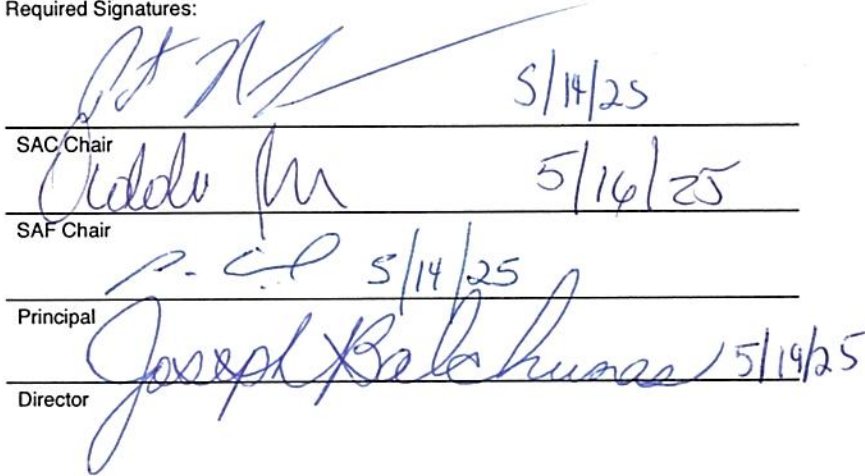 Required Signatures:
5/14/25
SAC Chair
5/16/25
SAF Chair
5/14/25
Principal
Joseph Balchunas 5/19/25
Director